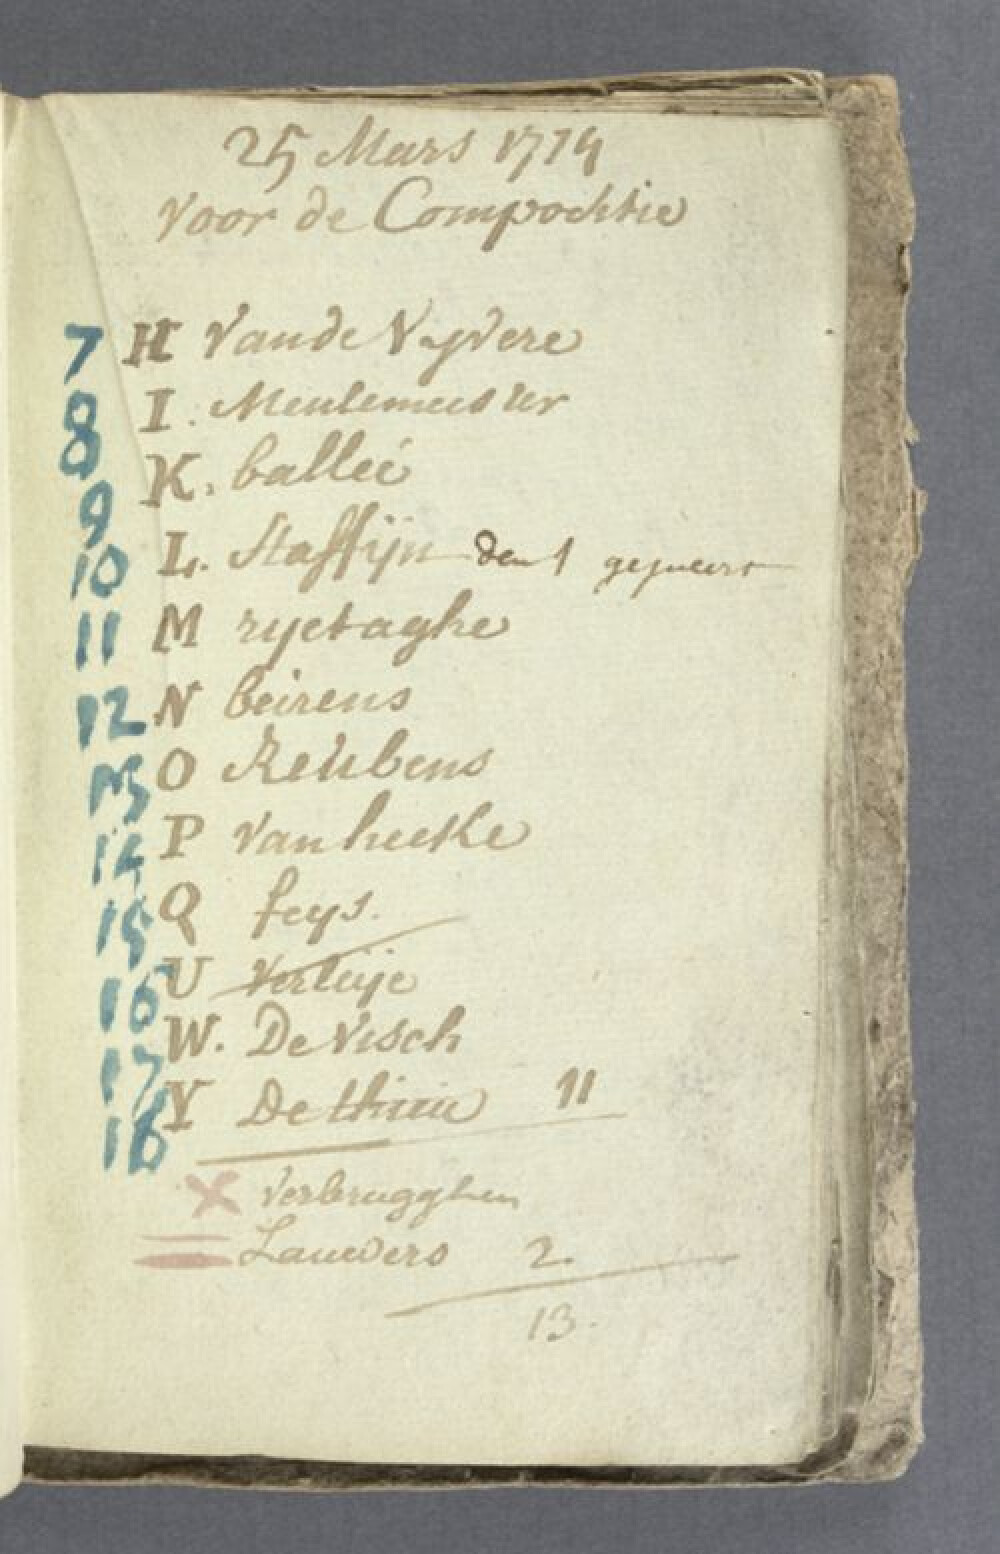 25 Mars 1774
voor de Compochtie
7 H VandeVyvere
8 I. Meulemeester
8 K. balleé
9 L. Staffijn den 1
10 M ryetaghe
11 N beirens
12 O Reubens
13 P Vanheeke
14 Q feys.
15 U Verleije
16 W. De Visch
17 Y Dethuin 11
18
X Verbrugghen
Lauwers 2.
13.